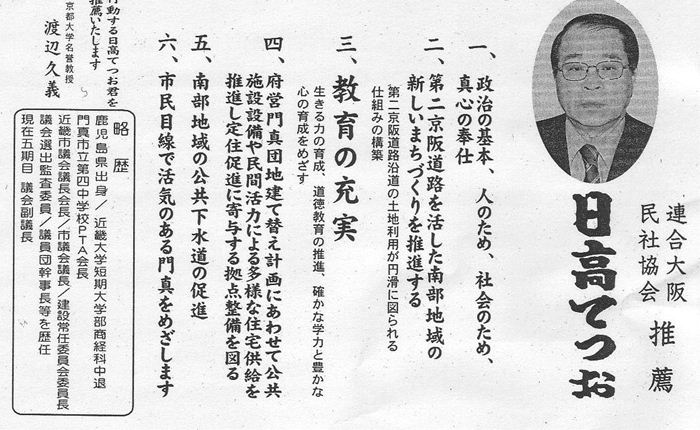 連合大阪
民社協会
推薦
日高てつお
一、政治の基本、人のため、社会のため、
真心の奉仕
二、第二京阪道路を活した南部地域の
新しいまちづくりを推進する
第二京阪道路沿道の土地利用が円滑に図られる
仕組みの構築
三、教育の充実
生きる力の育成、道徳教育の推進、確かな学力と豊かな
心の育成をめざす
四、府営門真団地建て替え計画にあわせて公共
施設設備や民間活力による多様な住宅供給を
推進し定住促進に寄与する拠点整備を図る
五、南部地域の公共下水道の促進
六、市民目線で活気のある門真をめざします
行動する日高てつお君を
推薦いたします
京都大学名誉教授
渡辺久義
略歴
鹿児島県出身／近畿大学短期大学部商経科中退
門真市立第四中学校PTA会長
近畿市議会議長会長／市議会議長／建設常任委員会委員長
議会選出監査委員／議員団幹事長等を歴任
現在五期目 議会副議長